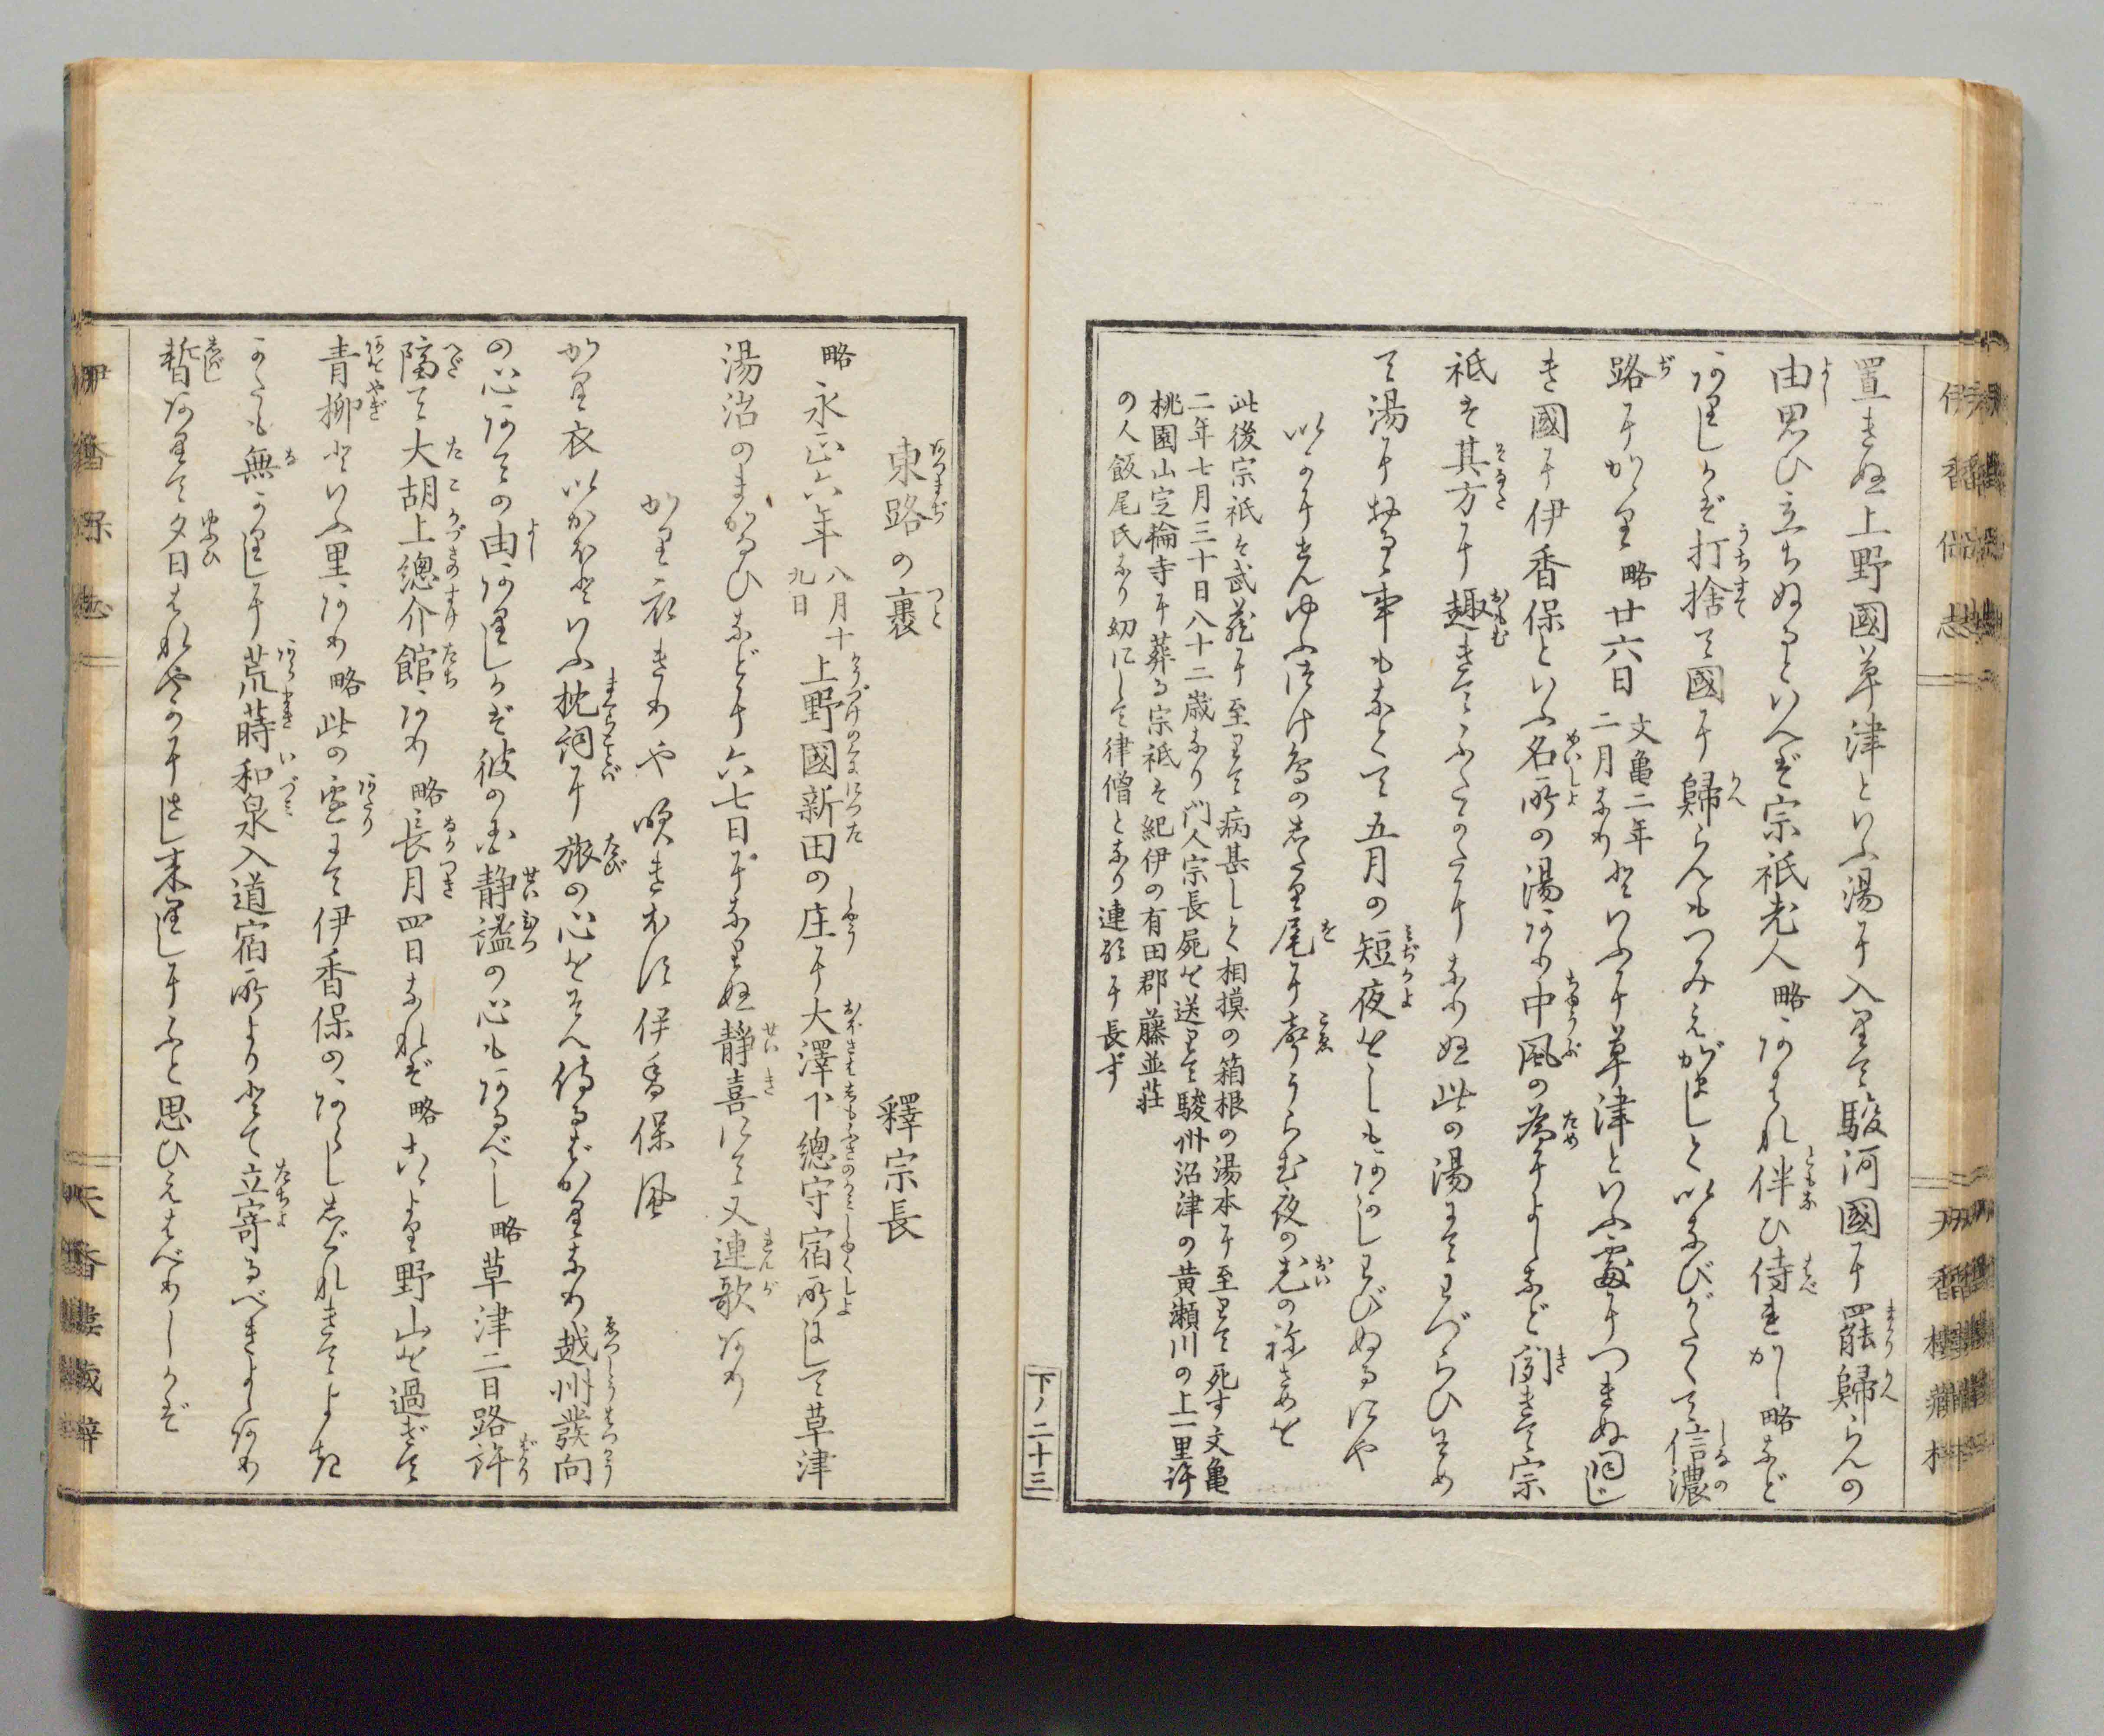 置きぬ上野國草津といふ湯に入りて駿河國に罷歸らんの
由思ひ立ちぬるといへど宗祇老人略あはれ伴ひ侍れかし略など
ありしかど打捨て國に歸らんもつみえがましくいなびがたくて信濃
路にかゝり略廿六日文亀二年二月なりといふに草津といふ處につきぬ同じ
き國に伊香保といふ名所の湯あり中風の為によしなど聞きて宗
祇は其方に趣きてふたかたになりぬ此の湯にてわづらひそめ
て湯におるゝ事もなくて五月の短夜をしもあかしわびぬるにや
いかにせんゆふつけ鳥のしだり尾に聲うらむ夜の老のねざめを
此後宗祇は武蔵に至りて病甚しく相摸の箱根の湯本に至りて死す文亀
二年七月三十日八十二歳なり門人宗長屍を送りて駿州沼津の黄瀬川の上一里許
桃園山定輪寺に葬る宗祇は紀伊の有田郡藤並荘
の人飯尾氏なり幼にして律僧となり連歌に長ず
下ノ二十三
東路の裹 釋宗長
略永正六年八月十九日上野國新田の庄に大澤下總守宿所にして草津
湯治のまかなひなどに六七日になりぬ静喜にて又連歌あり
かり衣きりや吹きほす伊香保風
かり衣いかほといふ枕詞に旅の心をそへ侍るばかりなり越州發向
の心あての由ありしかど彼の國静謐の心もあるべし略草津二日路許
隔て大胡上總介館あり略長月四日なれど略こゝより野山を過ぎて
青柳といふ里あり略此の辺にて伊香保のあらししぐれきてよき
かたも無かりしに荒蒔和泉入道宿所よりとて立寄るべきよしあり
暫ありて夕日はれやかにさし来りしにふと思ひえはべりしかど